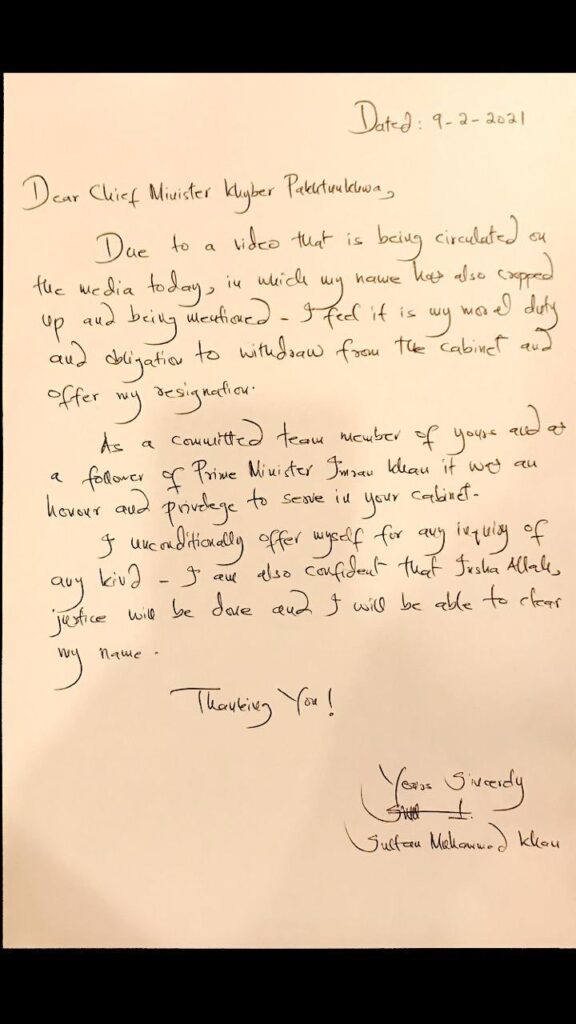 Dated: 9-2-2021
Dear Chief Minister Khyber Pakhtunkhwa,
Due to a video that is being circulated on
the media today, in which my name has also cropped
up and being mentioned - I feel it is my moral duty
and obligation to withdraw from the cabinet and
offer my resignation.
As a committed team member of yours and as
a follower of Prime Minister Imran Khan it was an
honour and privilege to serve in your cabinet.
I unconditionally offer myself for any inquiry of
any kind - I am also confident that Insha Allah,
justice will be done and I will be able to clear
my name.
Thanking You!
Yours Sincerely
Sultan Mohammad Khan